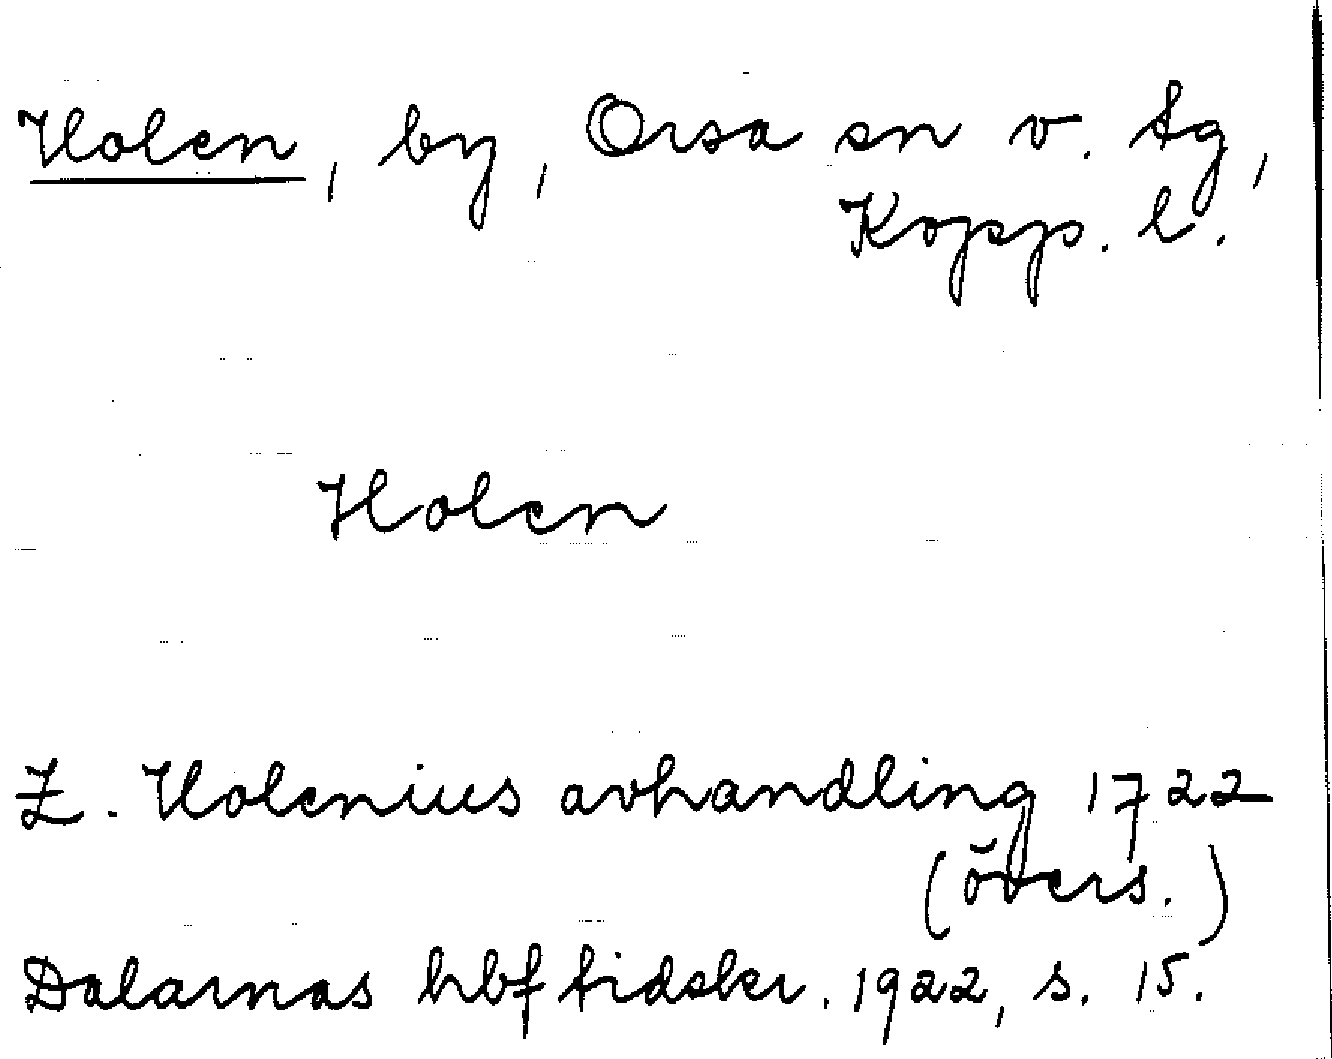 Holen, by, Orsa sn v. tg,
Kopp. l.
Holen
Z. Holenius avhandling 1722
(övers.)
Dalarnas hbf tidskr. 1922, s. 15.